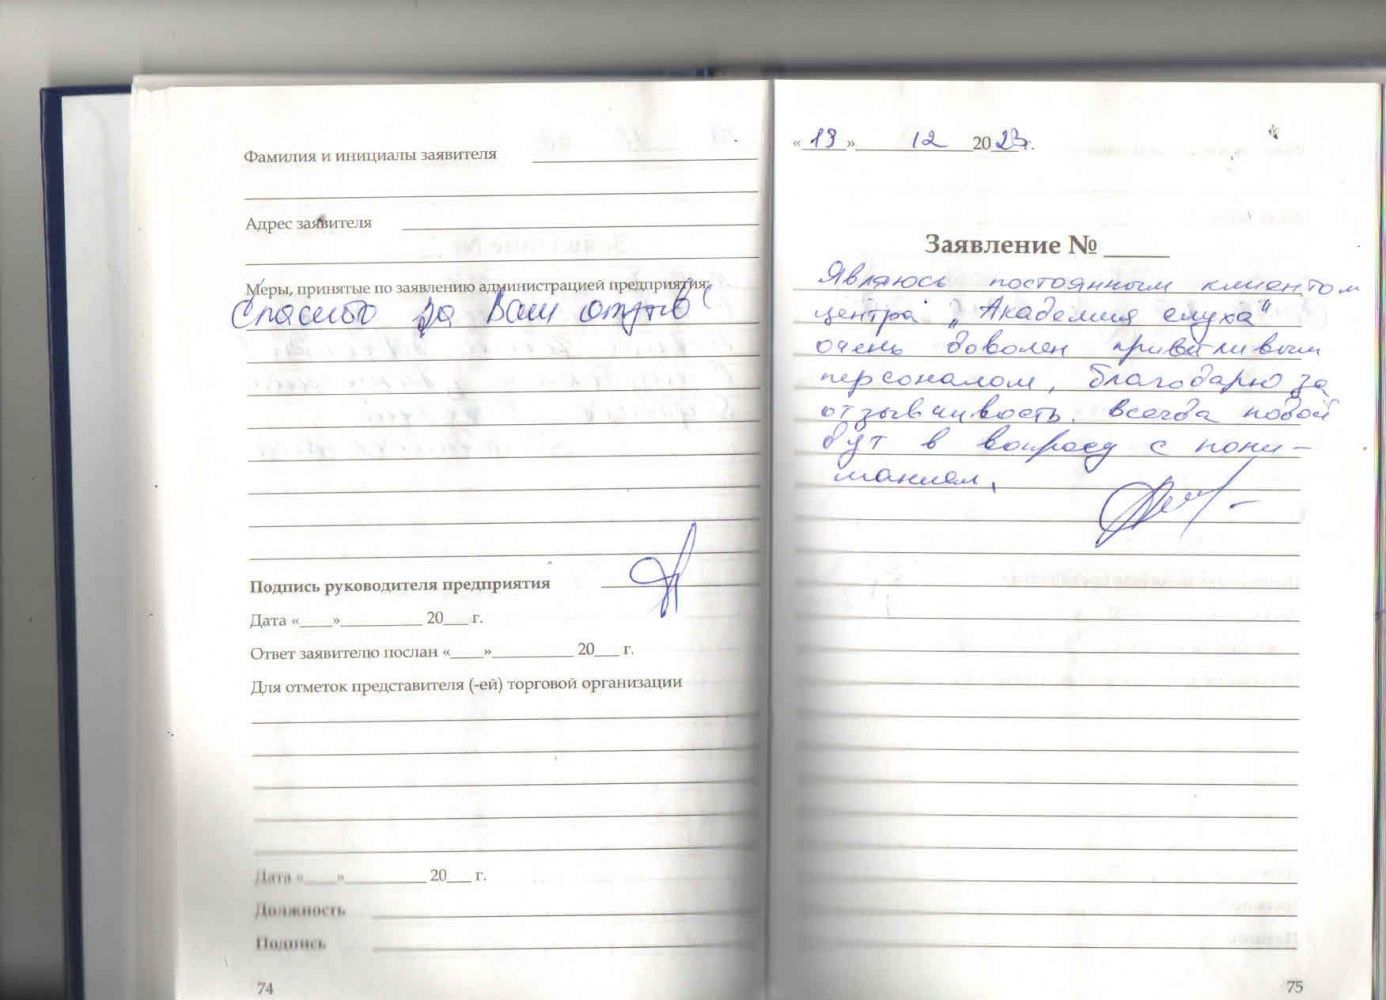 Фамилия и инициалы заявителя
Адрес заявителя
Меры, принятые по заявлению администрацией предприятия:
Спасибо за Ваш отзыв!
Подпись руководителя предприятия
Дата «___»_________ 20___ г.
Ответ заявителю послан «___»_________ 20___ г.
Для отметок представителя (-ей) торговой организации
Дата «___»_________ 20___ г.
Должность
Подпись
74
«19» 12 2023 г.
Заявление № _____
Являюсь постоянным клиентом
центра "Академия слуха"
очень доволен приветливым
персоналом, благодарю за
отзывчивость. Всегда подой
дут в вопросу с пони-
манием.
75